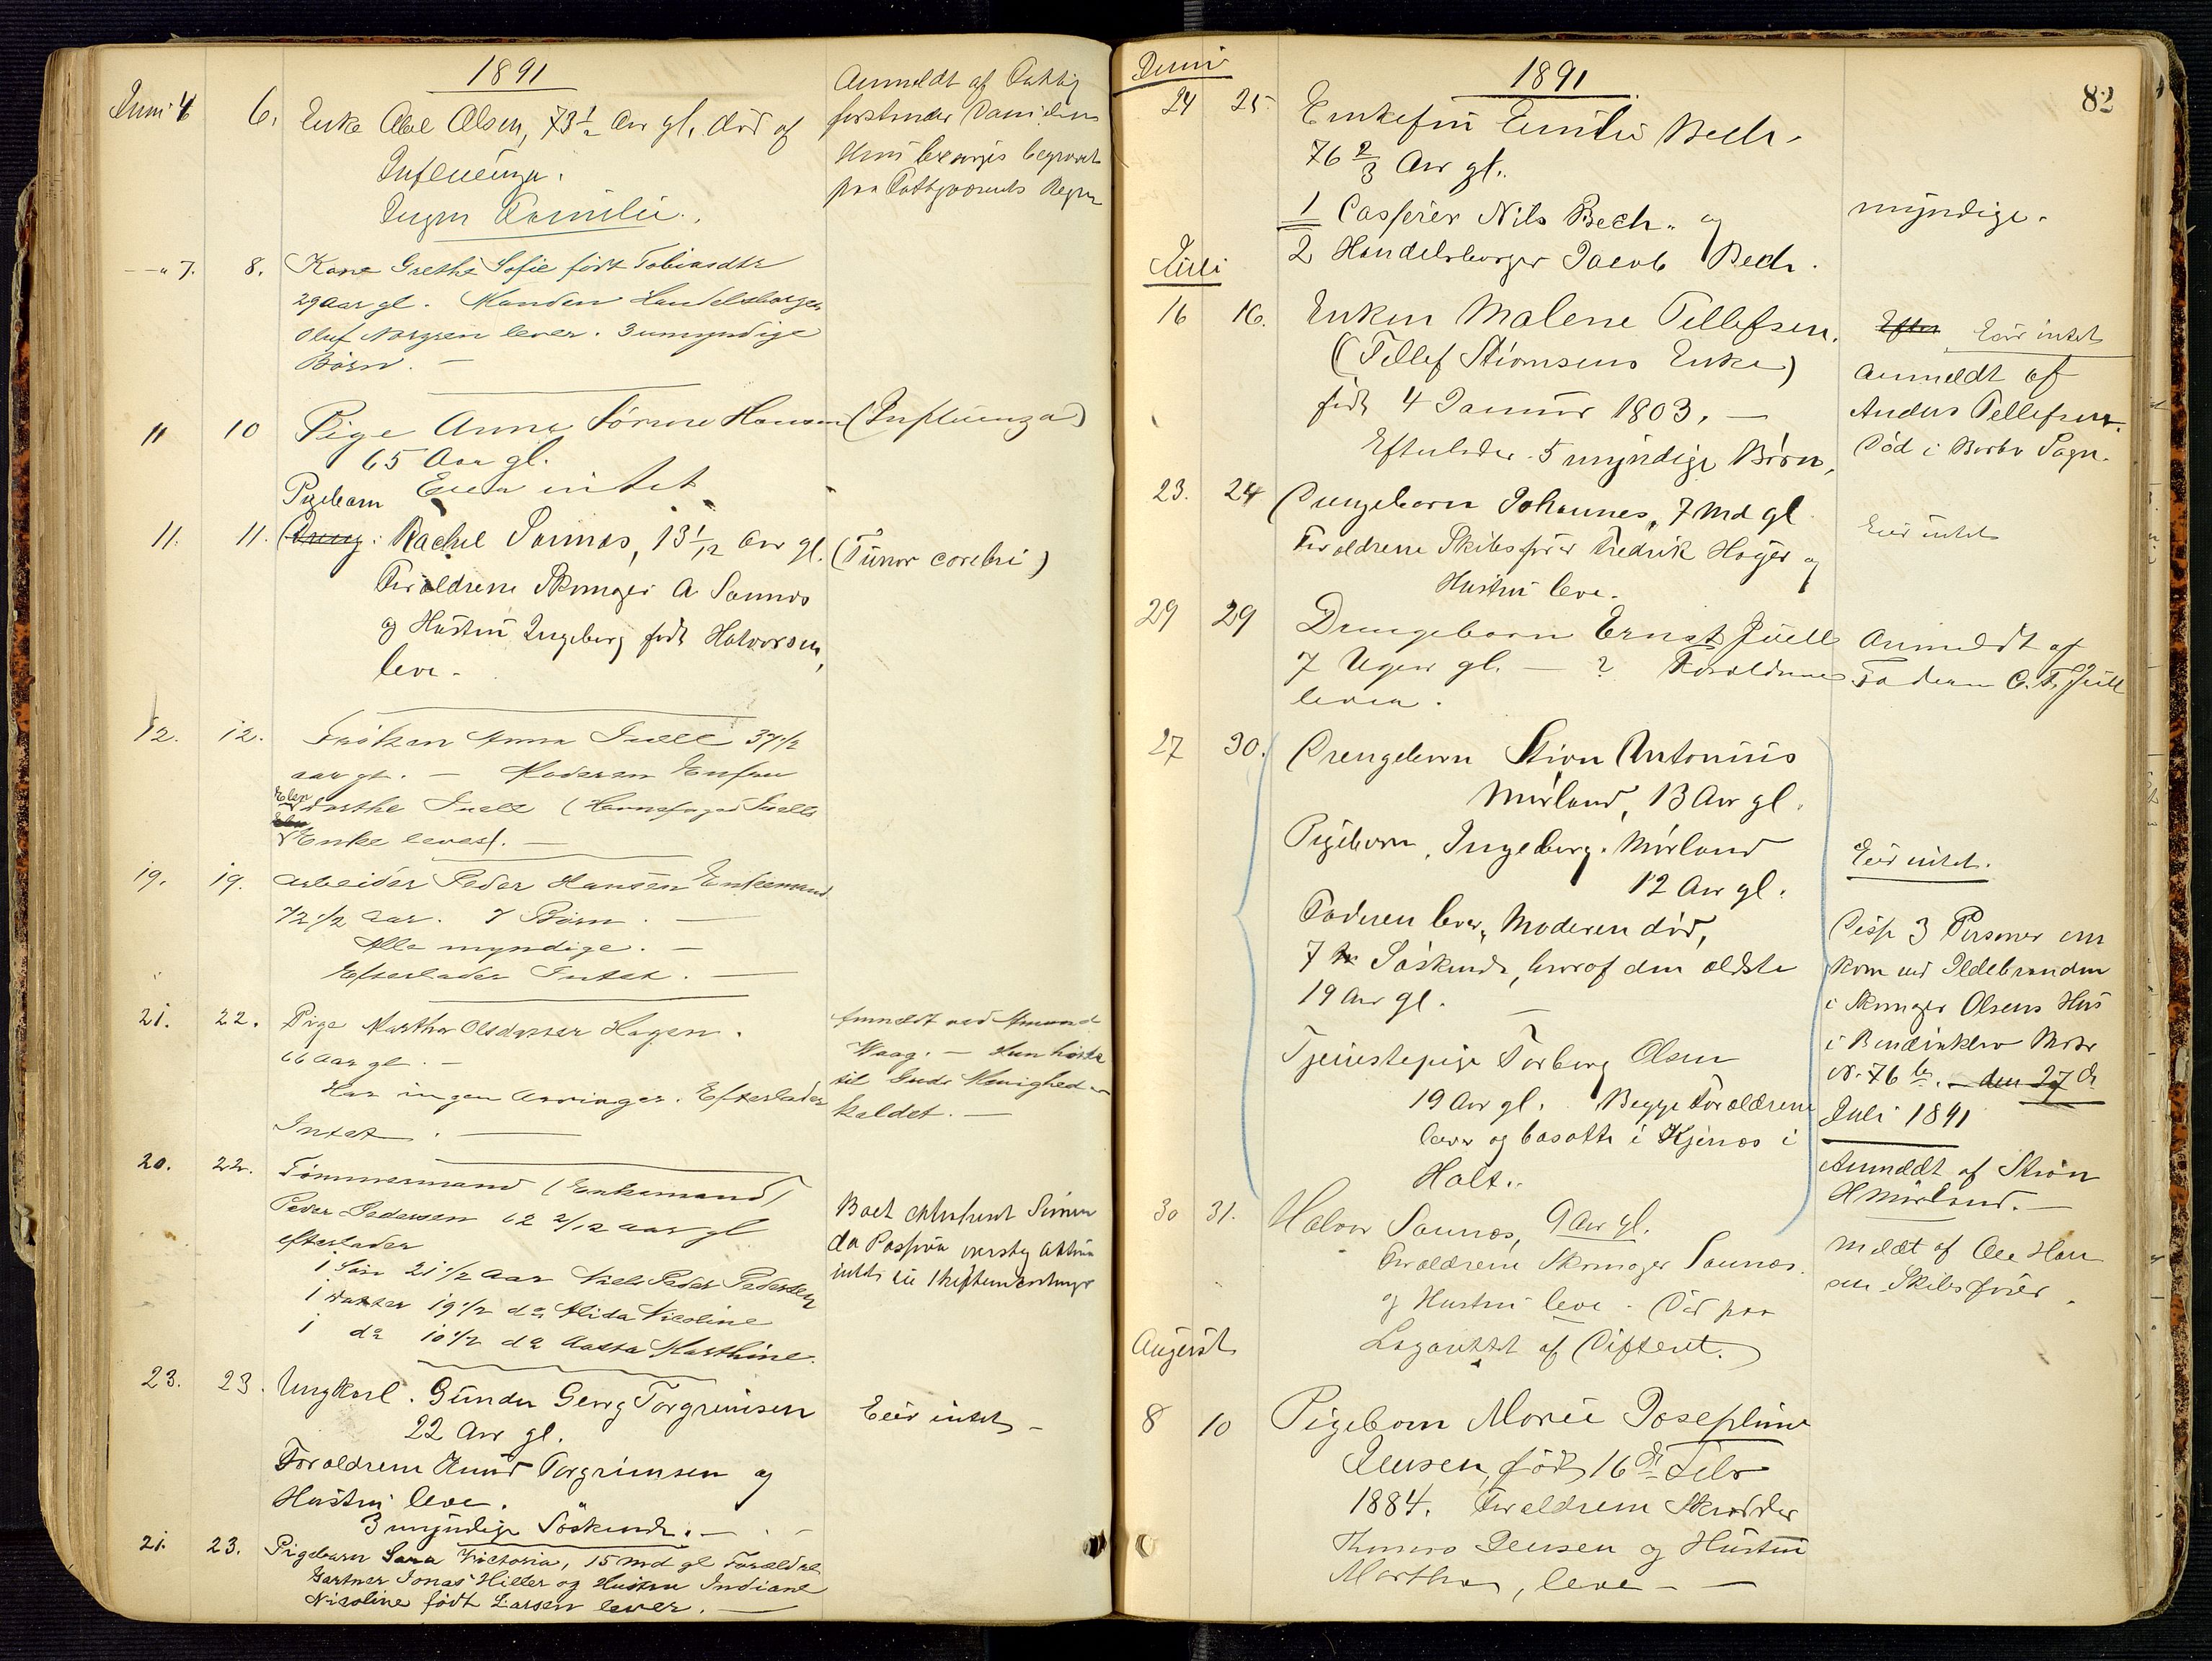 1891
Juni 4 6. Enke Abel Olsen, 73 1/2 Aar gl. død af
Influenza.
Ingen Familie.
Anmeldt af Fattig
forstander Danielsen
begravet
paa Fattigvæsenets Regn
—"— 7. 8. Kone Grethe Sofie født Tobiasdtr
29 aar gl. Manden Handelsborger
Oluf lever. 3 umyndige
Børn. —
11 10 Pige Anne Hansen (Influenza)
65 Aar gl.
Eier intet
Pigebarn
11. 11. Rachel Sannæs, 13 1/12 Aar gl. (Tumor cerebri)
Forældrene Skomager A Sannæs
og Hustru Ingeborg født Halvorsen,
leve.
12. 12. Frøken Anna Juell 37 1/2
aar gl. — Moderen Enkefru
Elen Dorthe Juell (Havnefoged Juells
Enke lever). —
19. 19. Arbeider Peder Hansen Enkemand
72 1/2 Aar. 7 Børn. —
Alle myndige. —
Efterlader Intet. —
21. 22. Pige Marthe Olsdatter Hagen.
66 Aar gl. —
Har ingen Arvinger. Efterlader
Intet. —
Anmeldt ved Amund
Waag. — Hun hørte
til Guds Menighed
kaldet. —
20. 22. Tømmermand (Enkemand)
Peder Pedersen 62 2/12 aar gl
efterlader
1 Søn 21 1/2 Aar Niels Peder Pedersen
1 Datter 19 1/2 do Alida Nicoline
1 do 10 1/2 do Aasta Marthine.
Boet
23. 23. Ungkarl. Gunder Georg Torgrimsen
22 Aar gl.
Forældrene Knud Torgrimsen og
Hustru leve.
3 myndige Søskende. —
Eier intet —
21. 23. Pigebarn Sara Victoria, 15 Md gl Forældre
Gartner Jonas Hiller og Hustru Indiane
Nicoline født Larsen lever. —
Juni
1891
82
24 25. Enkefru Emilie Bech.
76 2/3 Aar gl.
1 Nils Bech. og
2 Handelsborger Jacob Bech.
myndige.
Juli
16 16. Enken Malene Tellefsen.
(Tellef Stiansens Enke)
født 4 Januar 1803. —
Efterlader 5 myndige Børn,
Eier intet
Anmeldt af
Anders Tellefsen.
Død i Barbo Sogn.
23. 24 Drengebarn Johannes, 7 Md gl
Forældrene Skibsfører Fredrik Høyer og
Hustru leve.
Eier intet
29 29 Drengebarn Ernst Juell
7 Uger gl. — ? Forældrene
lever.
Anmeldt af
Faderen C. F. Juell
27 30. Drengebarn Stian Antonius
Mørland, 13 Aar gl.
Pigebarn, Ingeborg Mørland
12 Aar gl.
Faderen lever, Moderen død,
7 Søskende, hvoraf den ældste
19 Aar gl. —
Tjenestepige Torborg Olsen
19 Aar gl. Begge Forældrene
lever og bosatte i i
Holt.
Eier intet.
Disse 3 Personer om
kom ved Ildebranden
i Skomager Olsens Hus
i
N. 76 b. — den 27 de
Juli 1891
Anmeldt af Stian
H Mørland. —
30 31. Halvor Sannæs, 9 Aar gl.
Forældrene Skomager Sannæs
og Hustru leve. Død paa
Lazarettet af Difterit.
Meldt af Ole Han
sen Skibsfører.
August
8 10 Pigebarn Marie Josephine
Jensen, født 16 de Febr
1884. Forældrene Skrædder
Thomas Jensen og Hustru
Marthe, leve — —